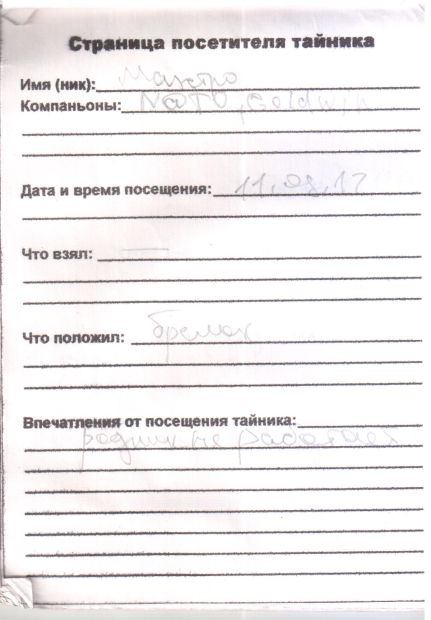 Страница посетителя тайника
Имя (ник): Маэстро
Компаньоны: NaTV, Geldwin
Дата и время посещения: 11.08.12
Что взял: —
Что положил: брелок
Впечатления от посещения тайника:
родник не работает